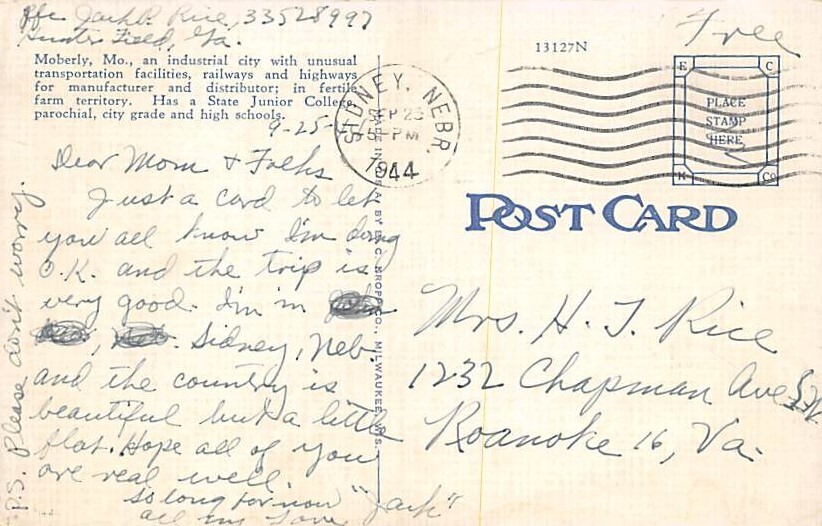 Pfc Jack P. Rice, 33528997
Hunter Field, Ga.
Moberly, Mo., an industrial city with unusual
transportation facilities, railways and highways
for manufacturer and distributor; in fertile
farm territory. Has a State Junior College,
parochial, city grade and high schools.
9-25-
Dear Mom & Folks
Just a card to let
you all know I'm doing
O.K. and the trip is
very good. I'm in
Sidney, Neb.
and the country is
beautiful but a little
flat. Hope all of you
are real well.
So long for now "Jack"
all my love
P.S. Please don't worry.
SIDNEY, NEBR.
SEP 25
PM
1944
BY E. C. KROPP CO., MILWAUKEE, WIS.
13127N
Free
E C
PLACE
STAMP
HERE
K Co
POST CARD
Mrs. H. T. Rice
1232 Chapman Ave S.W.
Roanoke 16, Va.